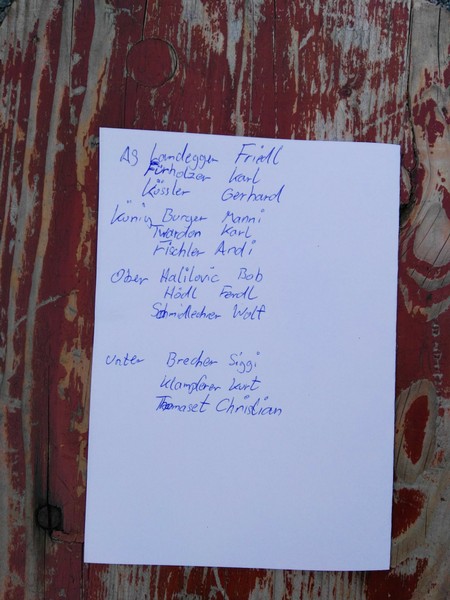 As Landegger Friedl
Fürholzer Karl
Kössler Gerhard
König Burger Manni
Twardon Karl
Fischler Andi
Ober Halilovic Bob
Hödl Ferdl
Schmidlechner Wolf
unter Brecher Siggi
Klampferer Kurt
Thomaset Christian